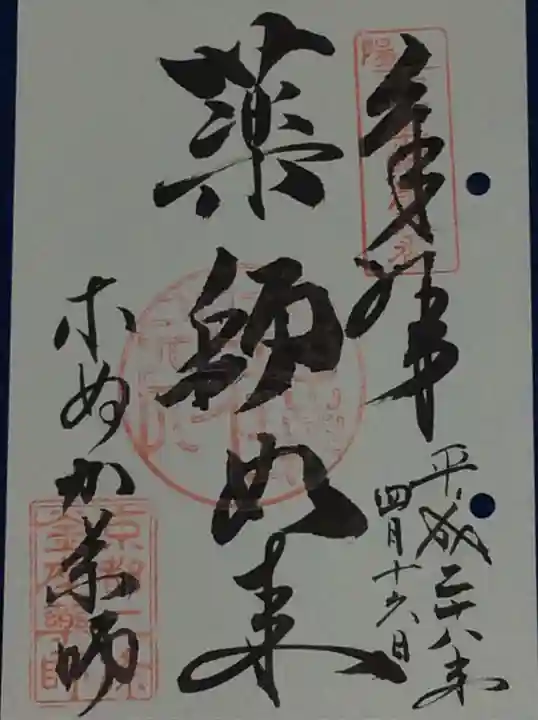 奉拝
平成二十八年
四月十六日
薬師如来
こぬか薬師